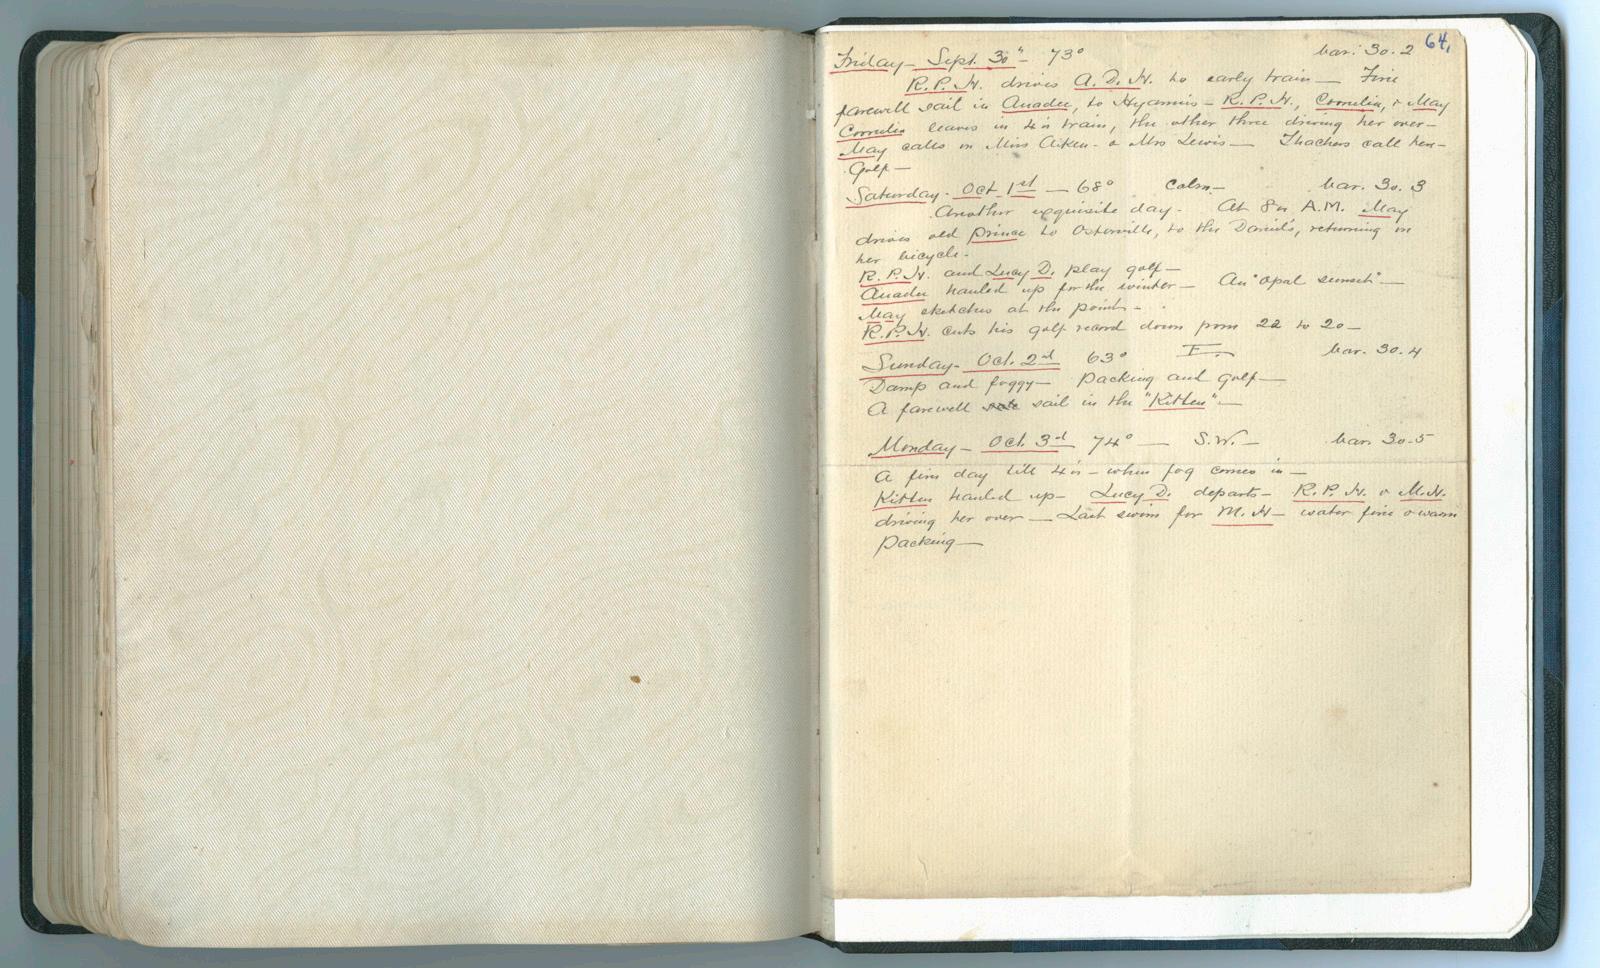 64.
Friday - Sept. 30th - 73° bar. 30.2
R.P.N. drives A.D.N. to early train — Fine
farewell sail in Anadee, to Hyannis - R.P.N., Cornelia, & May
Cornelia leaves in 4n train, the other three driving her over -
May calls on Miss Aiken - & Mrs Lewis — Thachers call here -
Golf —
Saturday - Oct 1st — 68° Calm - bar. 30.3
Another exquisite day - At 8n A.M. May
drives old Prince to Osterville, to the Daniels, returning on
her bicycle -
R.P.N. and Lucy D. play golf —
Anadee hauled up for the winter — An "opal sunset" —
May sketches at the point -
R.P.N. cuts his golf record down from 22 to 20 —
Sunday - Oct. 2nd 63° E. bar. 30.4
Damp and foggy — Packing and golf —
A farewell sail in the "Kitten" —
Monday - Oct. 3d 74° — S.W. — bar. 30.5
A fine day till 4n - when fog comes in —
Kitten hauled up - Lucy D. departs - R.P.N. & M.N.
driving her over — Last swim for M.N - water fine & warm
Packing —